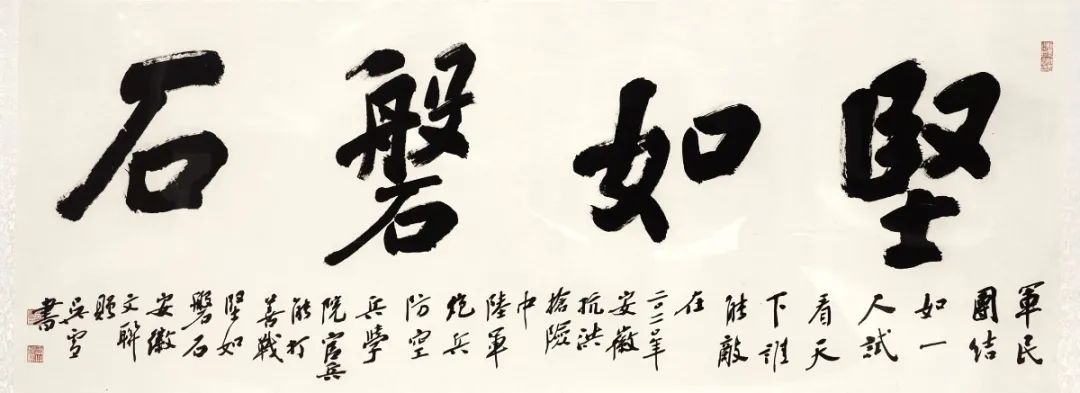 堅如磐石
軍民
團結
如一
人試
看天
下誰
能敵
在
年
安徽
抗洪
搶險
中
陸軍
炮兵
防空
兵學
院官兵
能打
善戰
堅如
磐石
安徽
文聯
題
吳雪
書